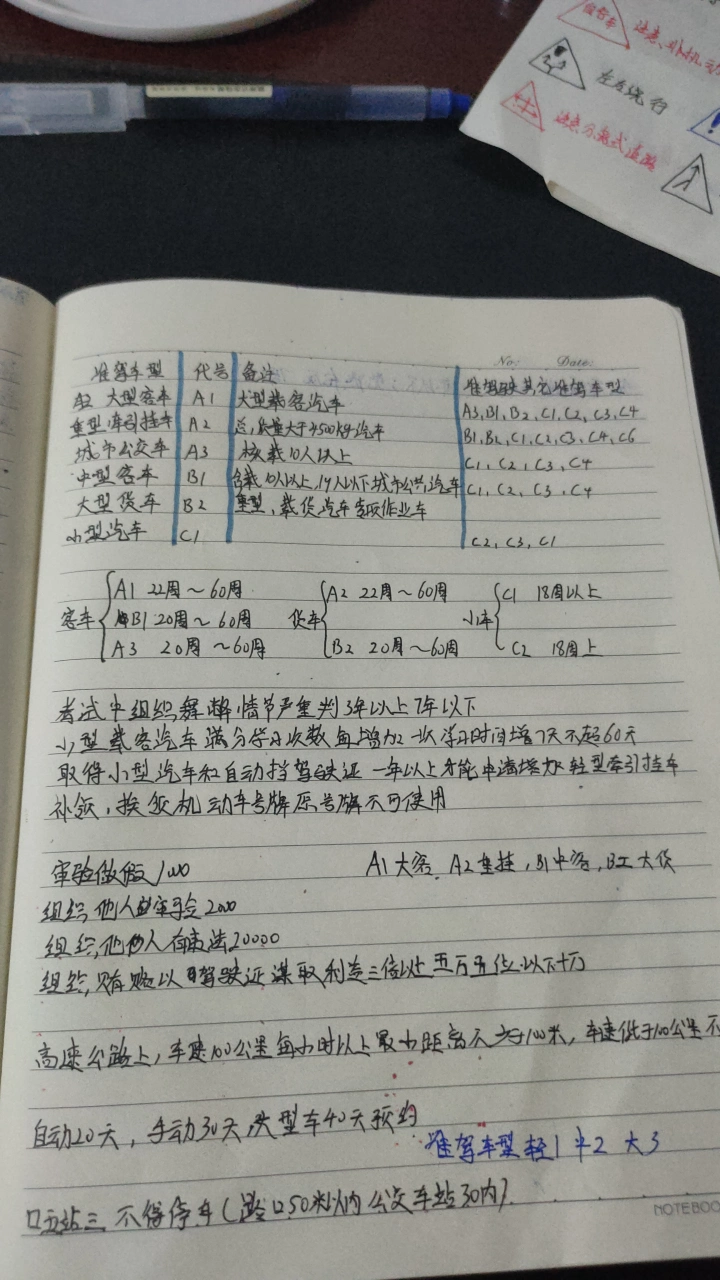 注意非机动
左右绕行
注意分离式道路
No: Date:
准驾车型 代号 备注 准驾驶其它准驾车型
大型客车 A1 大型载客汽车 A3、B1、B2、C1、C2、C3、C4
重型牵引挂车 A2 总质量大于4500kg汽车 B1、B2、C1、C2、C3、C4、C6
城市公交车 A3 核载10人以上 C1、C2、C3、C4
中型客车 B1 含载10人以上,19人以下城市公共汽车 C1、C2、C3、C4
大型货车 B2 重型、载货汽车专项作业车
小型汽车 C1 C2、C3、C1
客车 A1 22周~60周 货车 A2 22周~60周 小车 C1 18周以上
B1 20周~60周
A3 20周~60周 B2 20周~60周 C2 18周上
考试中组织舞弊,情节严重判3年以上7年以下
小型载客汽车满分学习次数每增加一次学习时间增7天不超60天
取得小型汽车和自动挡驾驶证一年以上才能申请增加轻型牵引挂车
补领,换领机动车号牌原号牌不可使用
审验做假1000 A1大客、A2重挂,B1中客,B2大货
组织他人审验2000
组织,他人 20000
组织,有 以 驾驶证谋取利益三倍以上五万五倍以下十万
高速公路上,车速100公里每小时以上最小距离不少于100米,车速低于100公里不
自动20天,手动30天大型车40天预约
准驾车型轻1中2大3
口五站三 不得停车(路口50米以内公交车站30内)
NOTEBOO